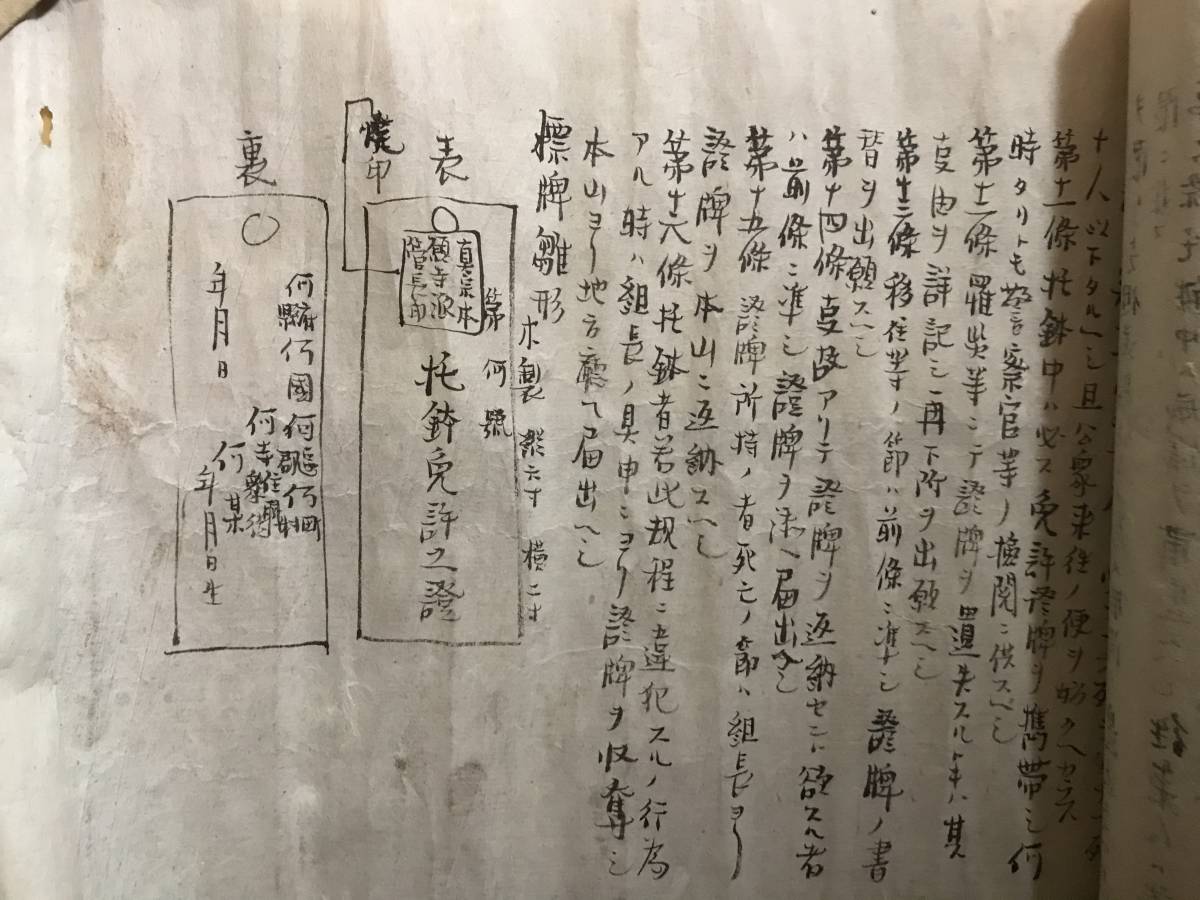 十人以下タルヘシ且公衆来往ノ便ヲ妨クヘカラス
第十一條 托鉢中ハ必ス免許證牌ヲ携帯シ何
時タリトモ警察官等ノ検閲ニ供スベシ
第十二條 罹災等ニテ證牌ヲ遺失スルトキハ其
叓由ヲ詳記シ再下附ヲ出願スヘシ
第十三條 移住等ノ節ハ前條ニ準シ證牌ノ書
替ヲ出願スヘシ
第十四條 叓故アリテ證牌ヲ返納セント欲スル者
ハ前條ニ準シ證牌ヲ添ヘ届出ヘシ
第十五條 證牌所持ノ者死亡ノ節ハ組長ヨリ
證牌ヲ本山ニ返納スヘシ
第十六條 托鉢者若此規程ニ違犯スルノ行為
アル時ハ組長ノ具申ニヨリ證牌ヲ収奪シ
本山ヨリ地方廳ヘ届出ヘシ
標牌雛形 木製 縦六寸 横二寸
表
焼印
第何號
真宗本
願寺派
管長印
托鉢免許之證
裏
何府縣何國何區郡何町村
何寺住職衆徒
何某
何年月日生
年月日